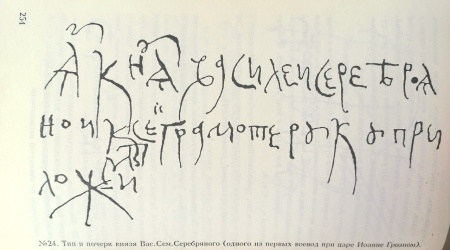 254
Ѧ кнѧз василеи серебрѧ
нои к сеи грамоте рꙋкꙋ при
ложил
№24. Тип и почерк князя Вас. Сем. Серебряного (одного из первых воевод при царе Иоанне Грозном).